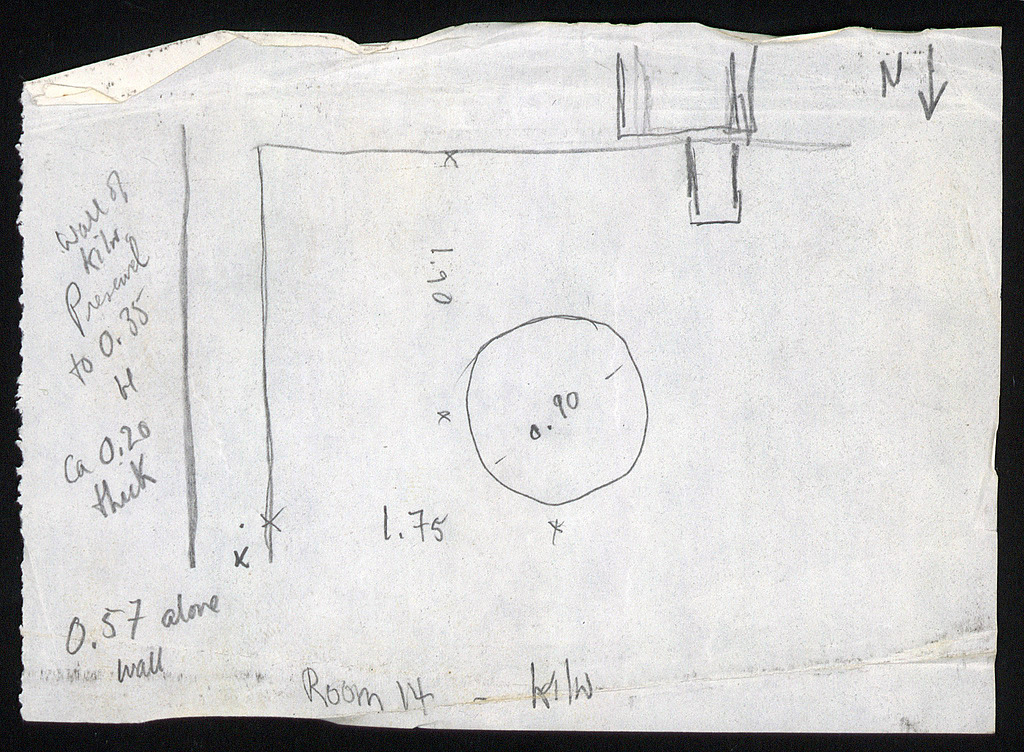 N
Wall of
kiln
Preserved
to 0.35
H
Ca 0.20
thick
1.90
0.90
1.75
x
0.57 alone
wall
Room 14 - kiln